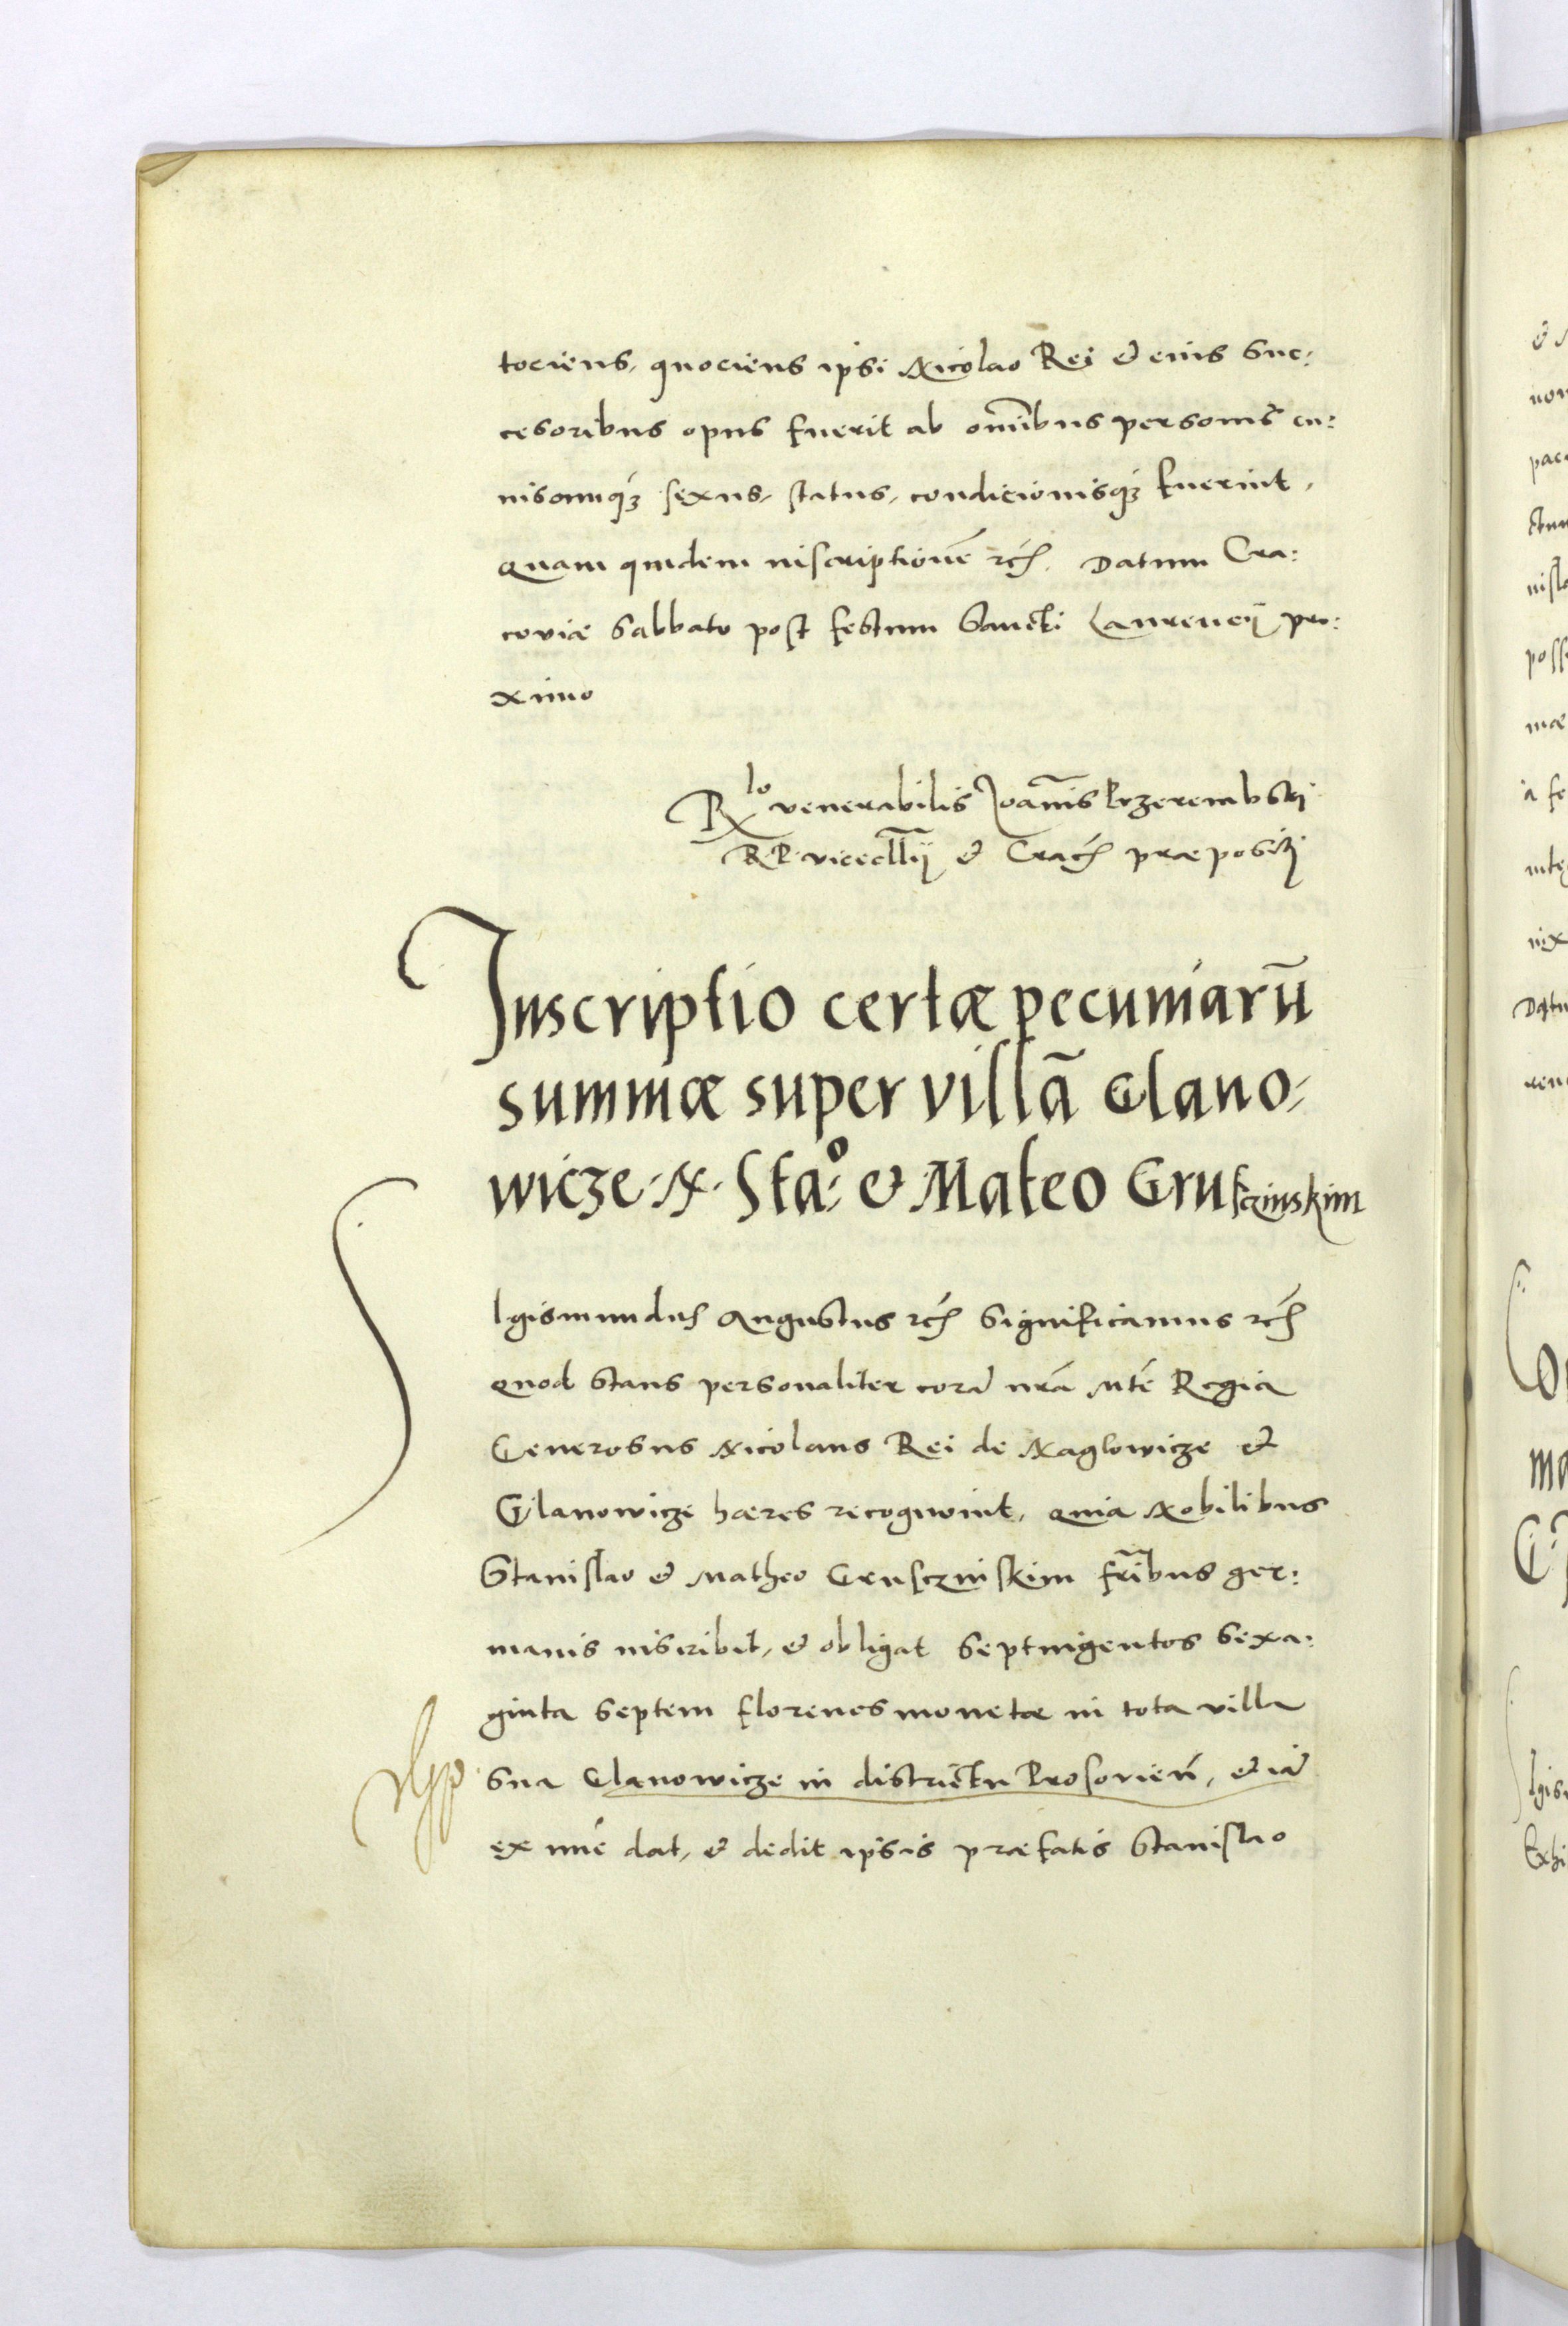 tociens, quociens ipsi Nicolao Rei et eius suc:
cesoribus opus fuerit ab om̃ibus personis cu:
iuscumq3 sexus, status, condicionisq3 fuerint,
quam quidem inscriptionẽ etc̃. Datum Cra:
coviæ Sabbato post festum Sancti Laurencij pro:
ximo
R̃lo venerabilis Joañis Przerembski
R. P. vicecllrij et Crac̃ præpositi
Inscriptio certæ pecuniarũ
summæ super villã Glano,
wicze N. Sta:o et Mateo Grusczinskim
Sigismundus Augustus etc̃ Significamus etc̃
quod stans personaliter corã nrã Mtẽ Regia
Generosus Nicolaus Rei de Naglowicze et
Glanowicze hæres recognovit, quia Nobilibus
Stanislao et Matheo Gruscziniskim fr̃ibus ger:
manis inscribit, et obligat Septuigentos sexa:
ginta septem florenos monetæ in tota villa
sua Glanowicze in districtu Proſovieñ, et iã
ex nũc dat, et dedit ipsis præfatis Stanislao